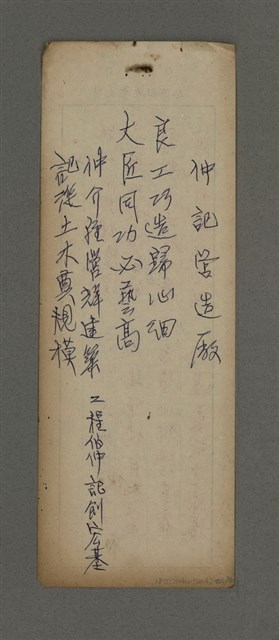 仲記营造廠
良工巧造歸心細
大匠同功必藝高
仲介經营輝建築
記後土木奠規模
工程仲記創宏基